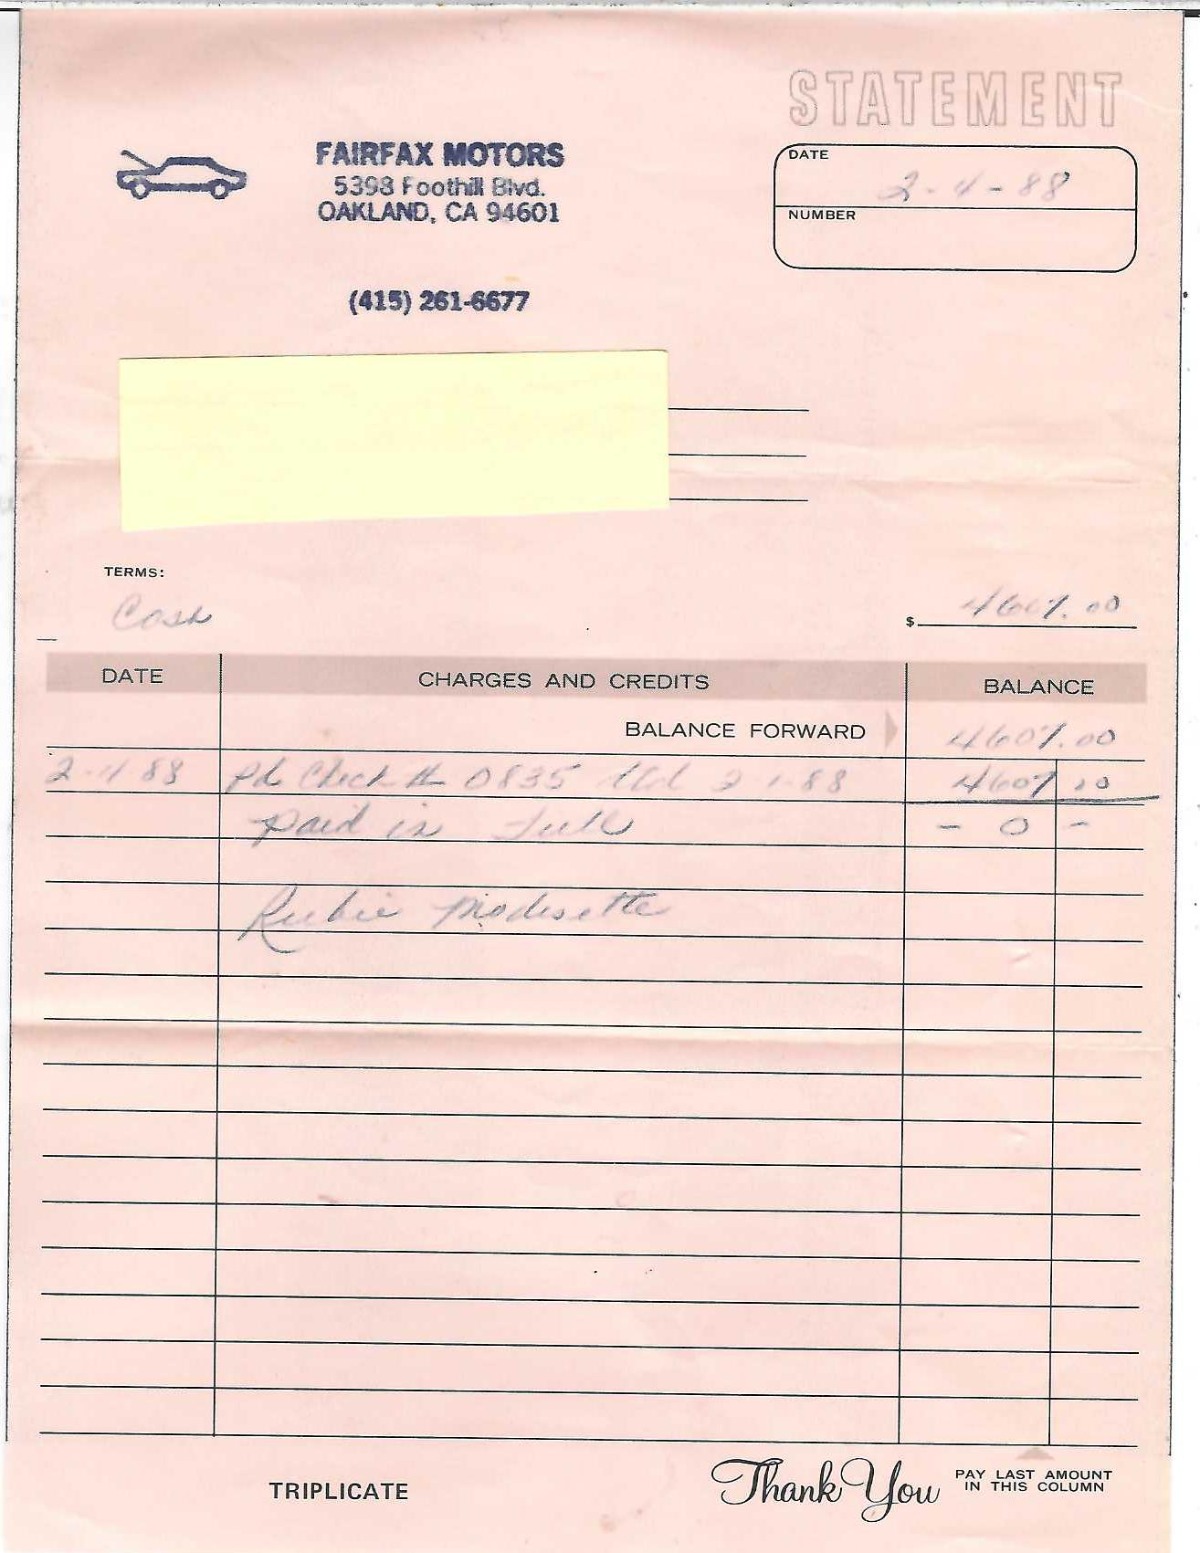 STATEMENT
FAIRFAX MOTORS
5398 Foothill Blvd.
OAKLAND, CA 94601
(415) 261-6677
DATE
2-4-88
NUMBER
TERMS:
Cash
$ 4607.00
DATE CHARGES AND CREDITS BALANCE
BALANCE FORWARD 4607.00
2-4-88 Pd Check # 0835 2-1-88 4607 00
paid in full - 0 -
Rubie
TRIPLICATE
Thank You
PAY LAST AMOUNT
IN THIS COLUMN